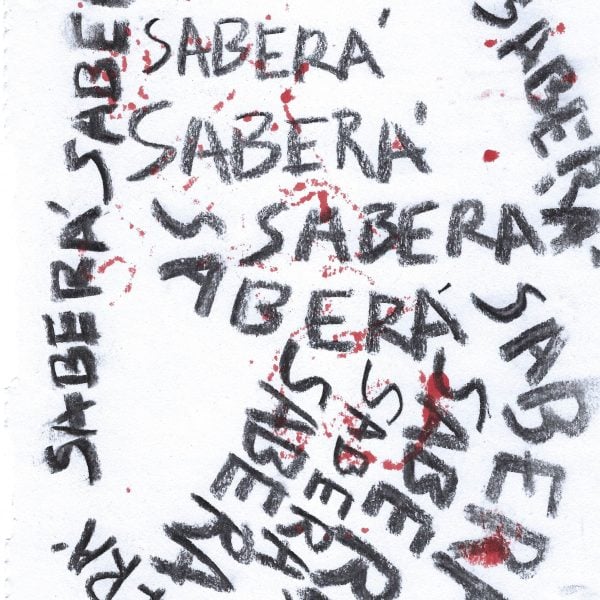 SABERÁ
SABERÁ
SABERA
SABERÁ
SABERÁ
SABE
SABERÁ
SABERA
SABERA
SABERA
SABER
SABERA
RÁ